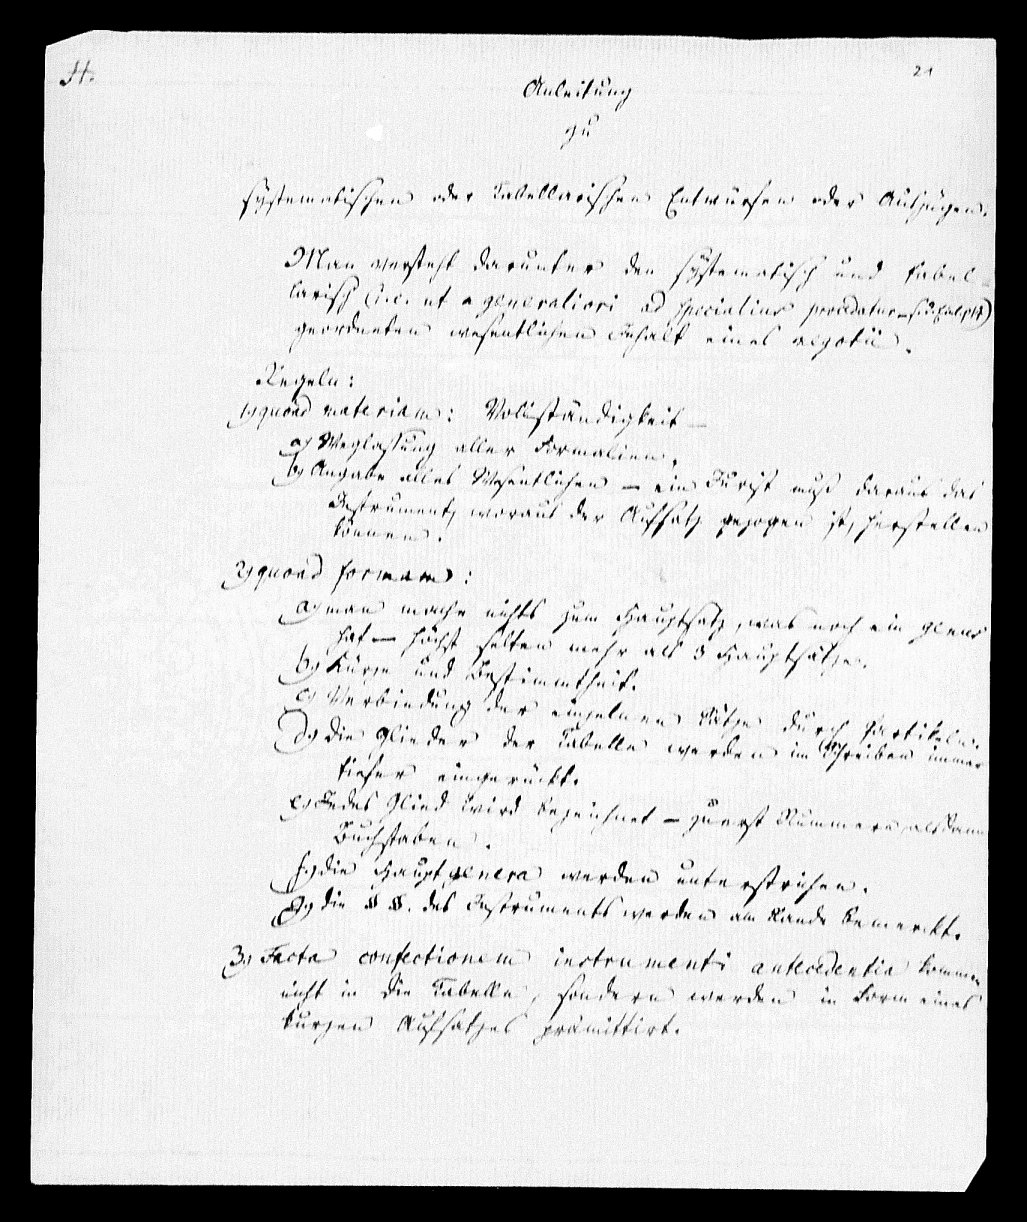 H.
21
Anleitung
zu
systematischen oder tabellarischen Entwürfen oder Auszügen.
Man versteht darunter den systematisch und tabel-
larisch (i.e. ut a generaliori ad specialius procedatur
geordneten wesentlichen Inhalt eines negotii.
Regeln:
1) quoad materiam: Vollständigkeit –
a) Weglassung aller Formalien.
b) Angabe alles Wesentlichen – ein Jurist muß daraus das
Instrument, woraus der Aufsatz gezogen ist, herstellen
können.
2) quoad formam:
a) man mache nichts zum Hauptsatz, was noch ein genus
hat – höchst selten mehr als 3 Hauptsätze.
b) Kürze und Bestimmtheit.
c) Verbindung der einzelnen Sätze durch Partikeln.
d) die Glieder der Tabelle werden im Schreiben immer
tiefer eingerückt.
e) Jedes Glied wird bezeichnet – zuerst Nummern, alsdann
Buchstaben.
f) die Hauptgenera werden unterstrichen.
g) die §§. des Instruments werden am Rande bemerckt.
3) Facta confectionem instrumenti antecedentia kommen
nicht in die Tabelle, sondern werden in Form eines
kurzen Aufsatzes prämittirt.